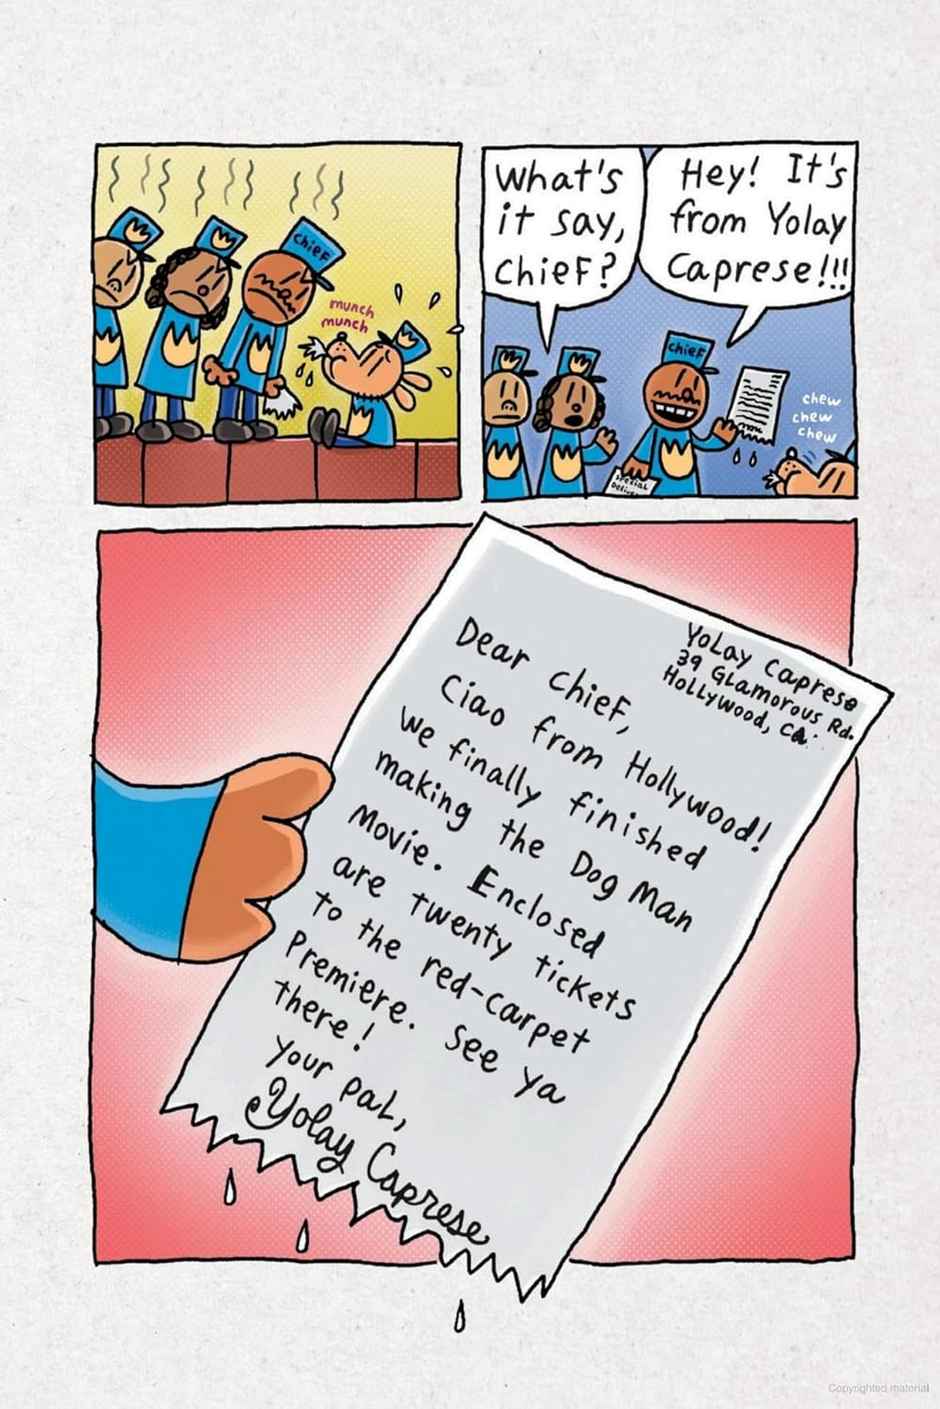 chief
munch
munch
What's
it say,
chief?
Hey! It's
from Yolay
Caprese!!!
chief
chew
chew
chew
special
YoLay Caprese
39 Glamorous Rd.
Hollywood, Ca.
Dear chief,
Ciao from Hollywood!
we finally finished
making the Dog Man
Movie. Enclosed
are twenty tickets
to the red-carpet
Premiere. See ya
there!
your pal,
Yolay Caprese
Copyrighted material